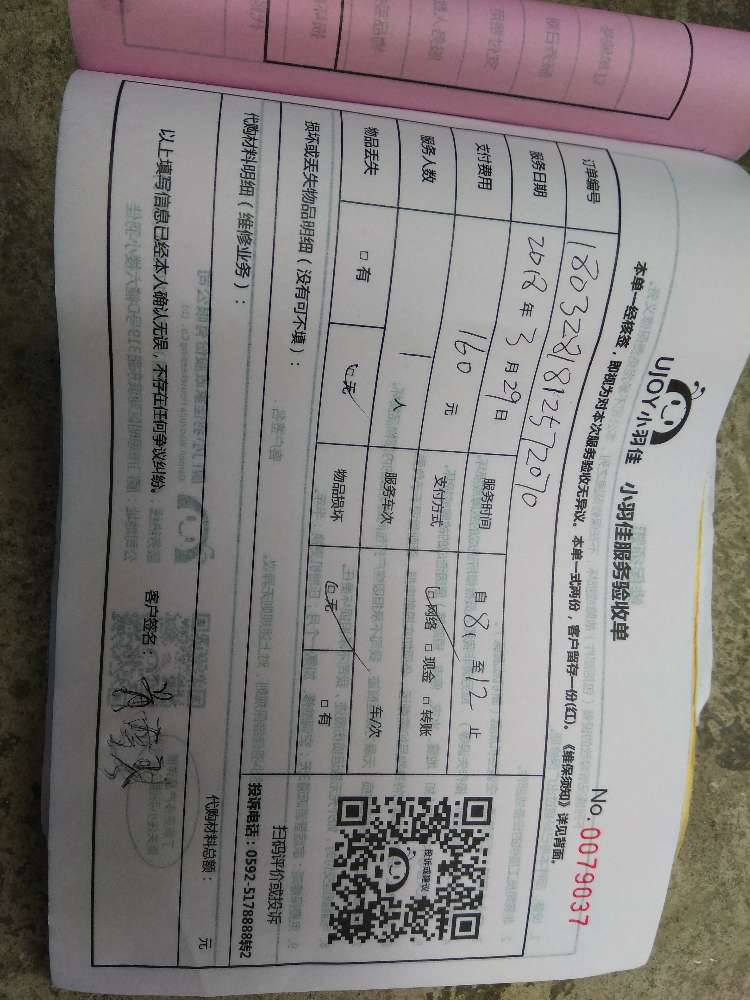 UJOY小羽佳 小羽佳服务验收单
No. 0079037
本单一经核签，即视为对本次服务验收无异议。本单一式两份，客户留存一份(红)。《维保须知》详见背面。
订单编号 1803281812572070
服务日期 2018 年 3 月 29 日 服务时间 自 8 至 12 止
支付费用 160 元 支付方式 网络 现金 转账
服务人数 1 人 服务车次 车/次
物品丢失 有 无 物品损坏 无 有
投诉或建议
扫码评价或投诉
投诉电话：0592-5178888转2
损坏或丢失物品明细（没有可不填）：
代购材料明细（维修业务）：
代购材料总额： 元
以上填写信息已经本人确认无误，不存在任何争议纠纷。
客户签名：